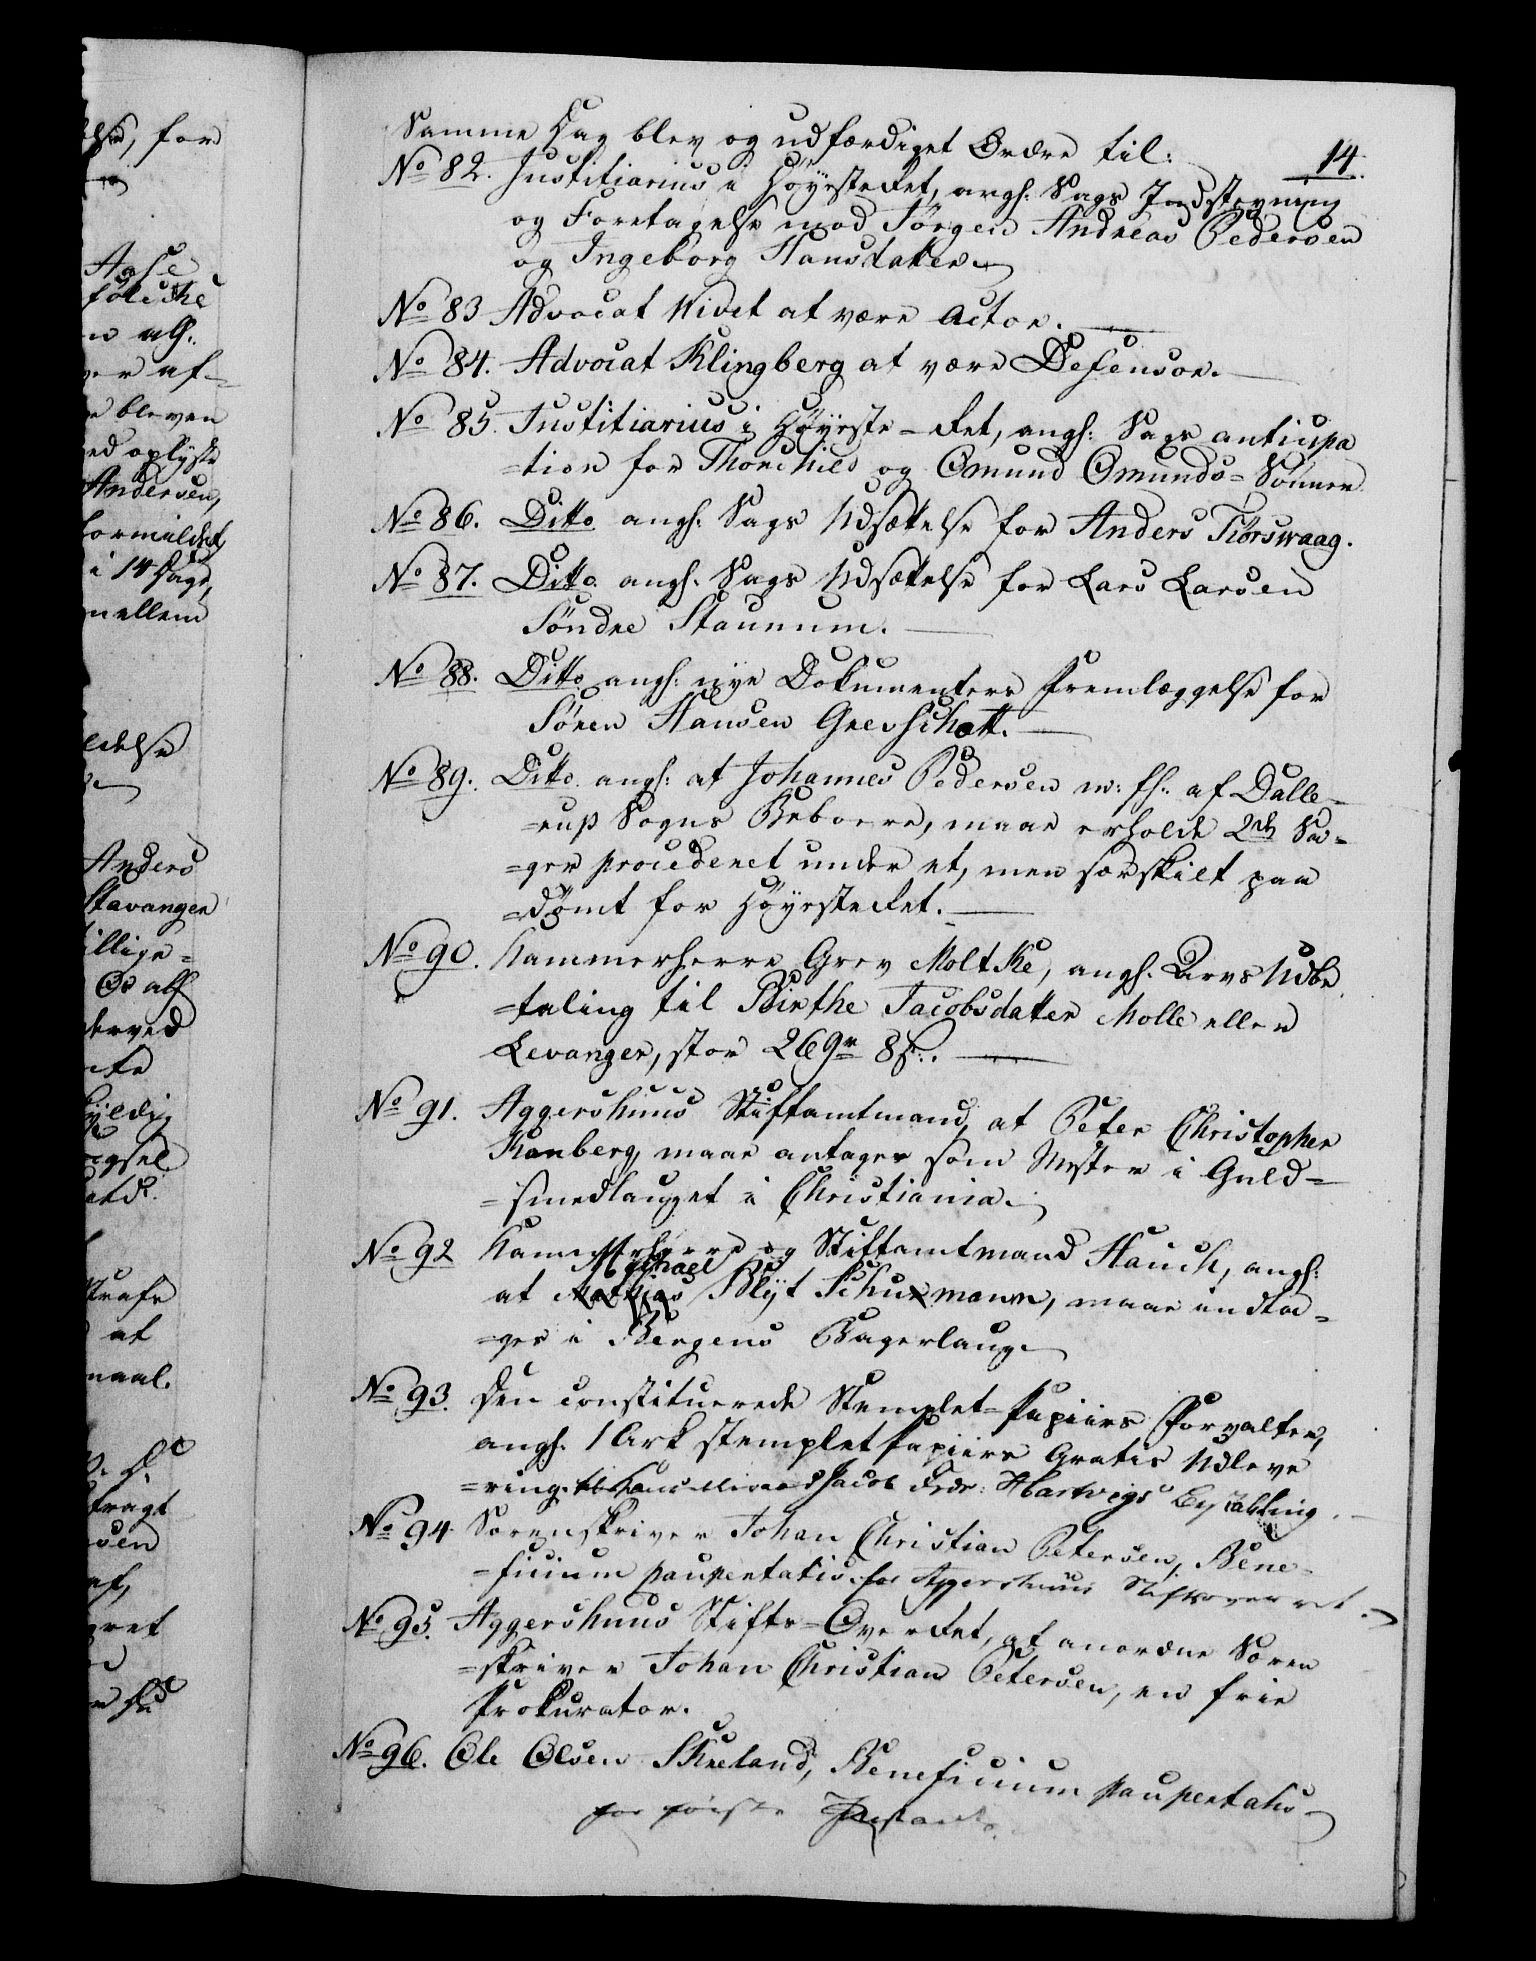 else, for
Aase
følische
n alh:
er af-
e bleven
ed oplyste
Andersen,
formeldet
i 14 Dage,
mellem
eldelse
Anders
Stavanger
illige=
Os alh
derved
yldig
ægsel
Strafe
at
maal.
tragt
sen
af,
gret
Samme Dag blev og udfærdiget Ordre til:
14.
No 82. Justitiarius i Høyesteret, angh: Sags Indstevning
og Foretagelse mod Jørgen Andreas Pedersen
og Ingeborg Hansdatter.
No 83 Advocat Wivet at være Actor.
No 84. Advocat Klingberg at være Defensor.
No 85. Justitiarius i Høyeste-Ret, angh: Sags anticipa
=tion for Thorchild og Omund Omunds=Sønner
No 86. Ditto angh: Sags Udsættelse for Anders Tiørswaag.
No 87. Ditto angh: Sags Udsættelse for Lars Larsen
Söndre Staunum.
No 88. Ditto angh: nye Dokumenters Fremlæggelse for
Sören Hansen Grevschott.
No 89. Ditto angh: at Johannes Pedersen m: fh: af Dalle-
=rup Sogns Beboere, maae erholde 2de Sa=
=ger procederet under et, men særskilt paa
=dømt for Høyesteret.
No 90. Kammerherre Grev Moltke, angh: Arvs Udbe
=taling til Birthe Jacobsdatter Molle eller
Levanger, stor 269r 8s:.
No 91. Aggershuus Stiftamtmand, at Peter Christopher
Kanberg, maae antages som Mester i Guld=
=smedlauget i Christiania.
No 92 Kammerherre og Stiftamtmand Hauch, angh:
Michael
at Mathias Blyt Schumann, maae indta=
=ges i Bergens Bagerlaug.
No 93. Den constituerede Stemplet=Papiirs Forvalter,
angh: 1 Ark stemplet Papiirs Gratis Udleve
=ring til Jacob Fr: Hartvigs Bestalling.
No 94 Sorenskriver Johan Christian Petersen, Bene=
=ficium paupertatis for Aggershuus Stiftsoverret.
No 95. Aggershuus Stifts=Over Ret, at anordne Soren
=skriver Johan Christian Petersen, en frie
Prokurator.
No 96. Ole Olsen Skreland, Beneficium paupertatis
for første Instants.